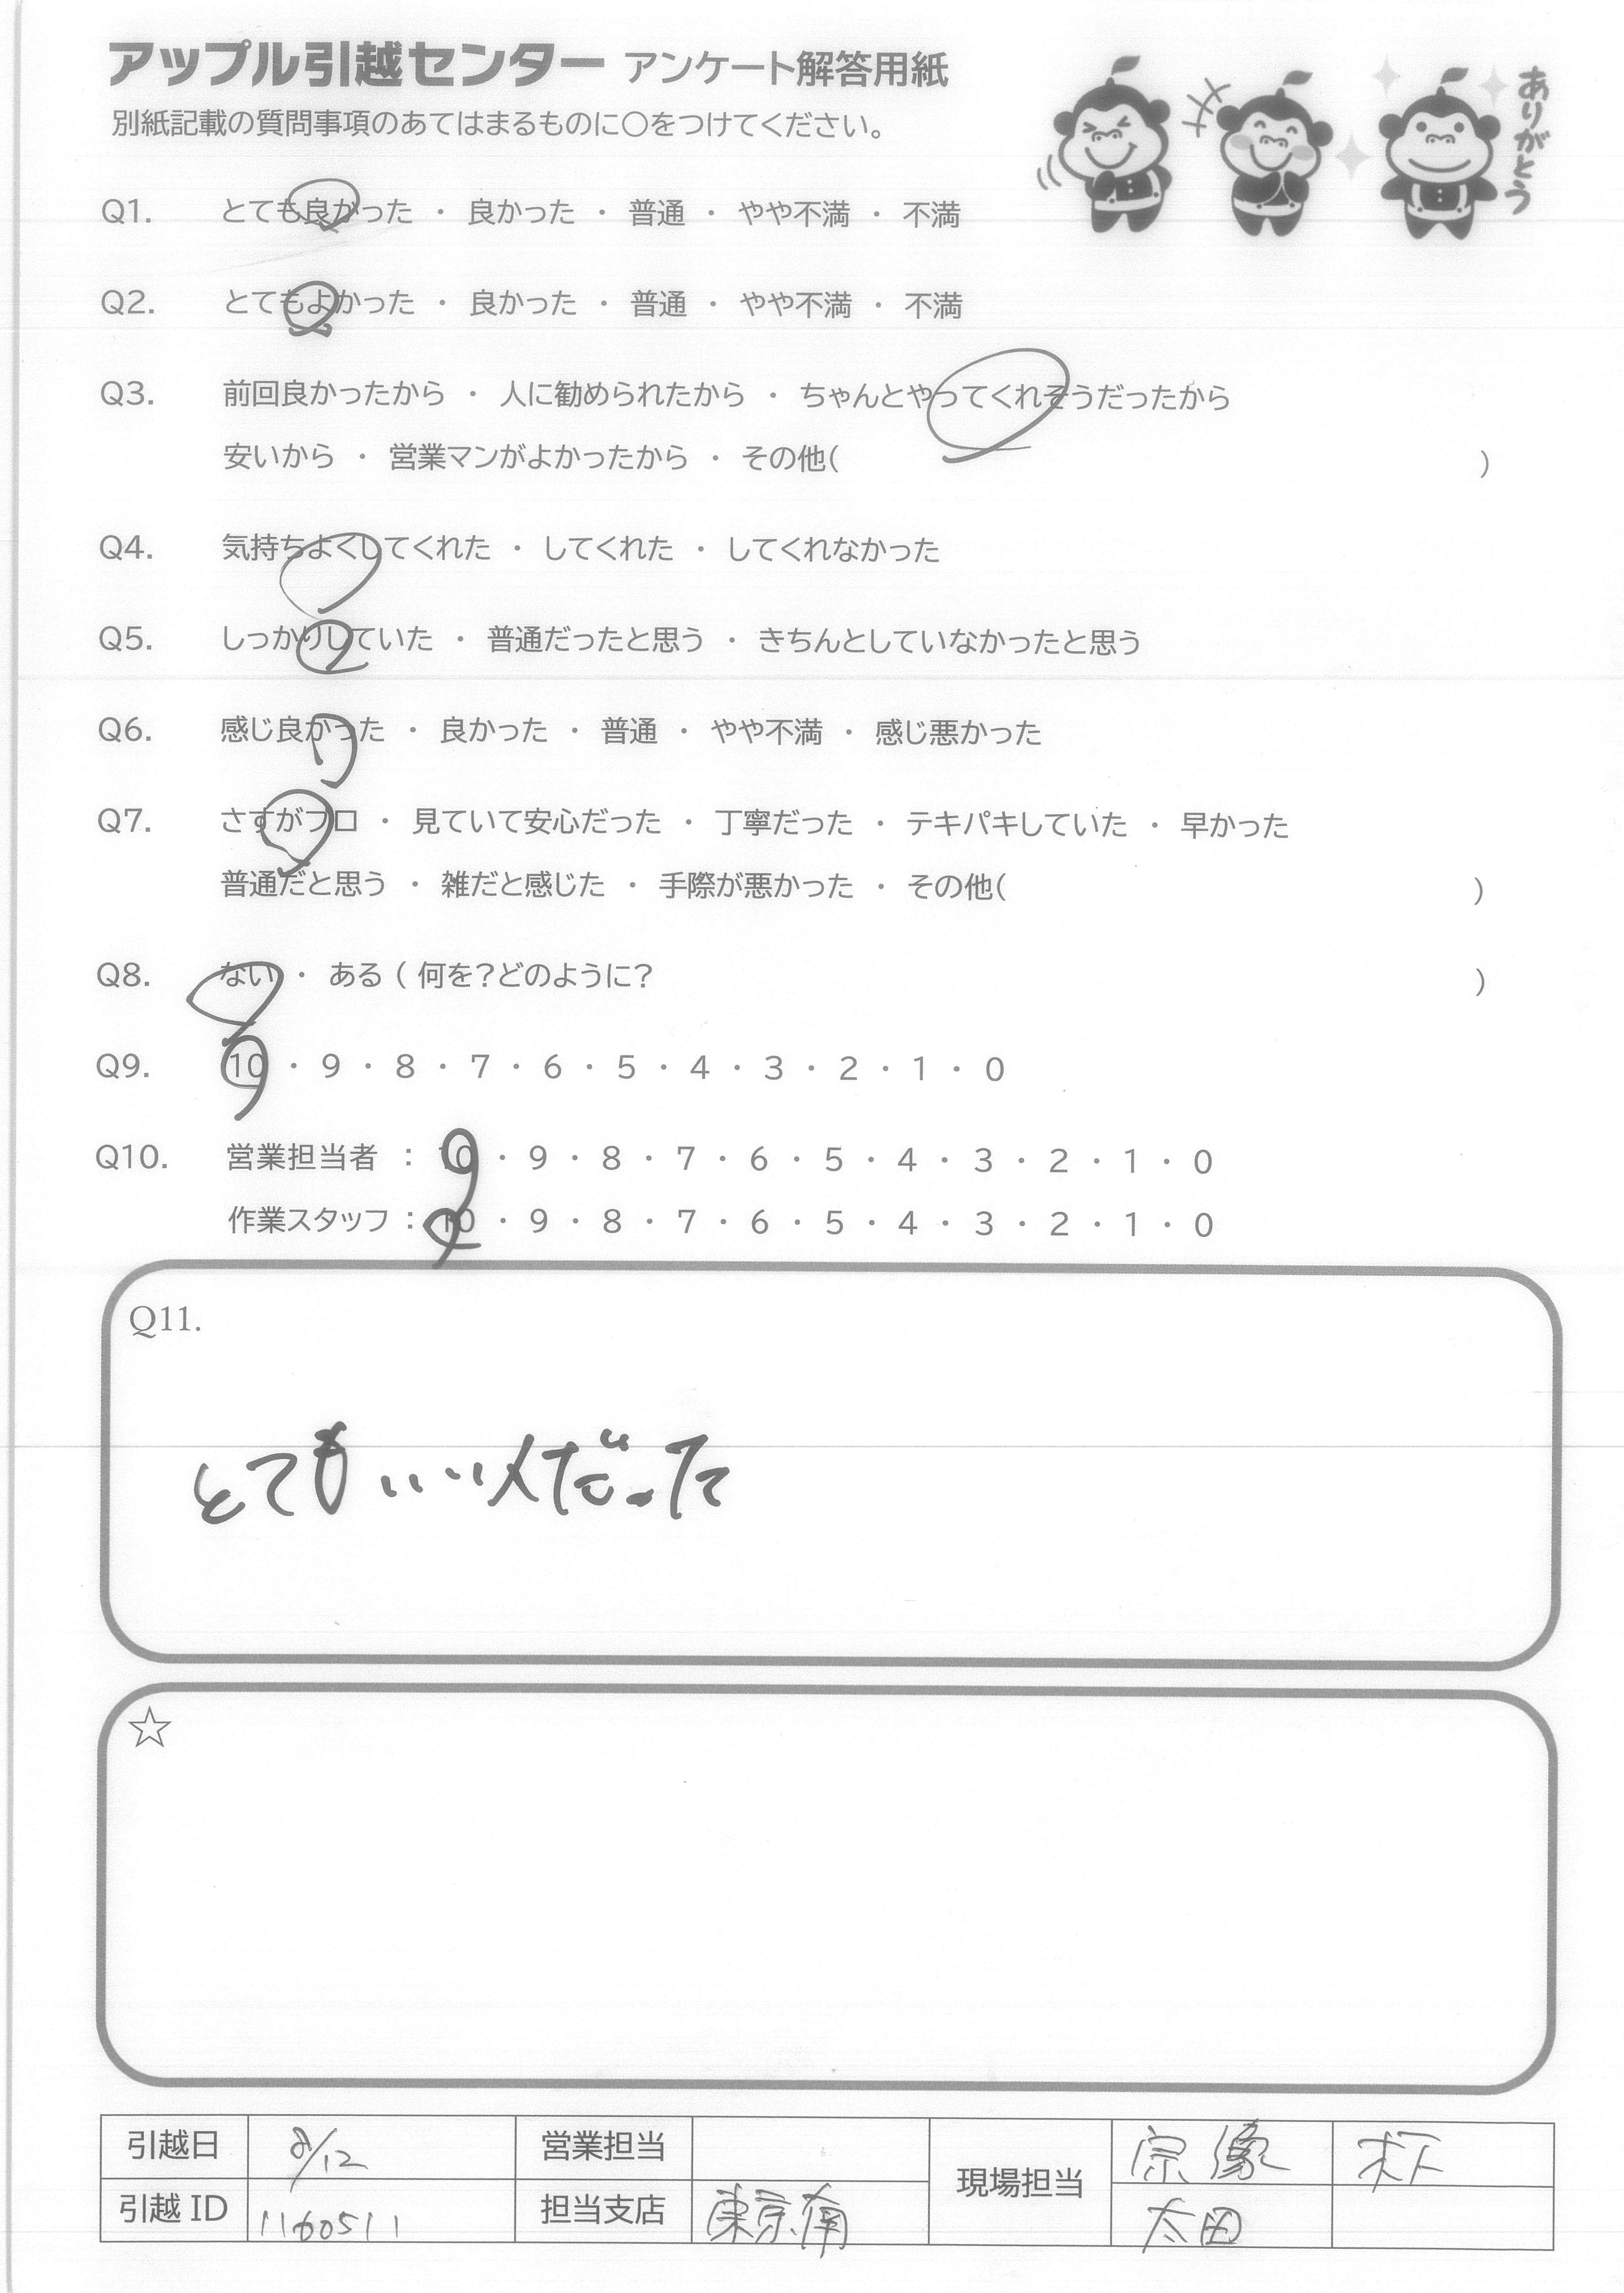 アップル引越センター アンケート解答用紙
別紙記載の質問事項のあてはまるものに○をつけてください。
ありがとう
Q1. とても良かった ・ 良かった ・ 普通 ・ やや不満 ・ 不満
Q2. とてもよかった ・ 良かった ・ 普通 ・ やや不満 ・ 不満
Q3. 前回良かったから ・ 人に勧められたから ・ ちゃんとやってくれそうだったから
安いから ・ 営業マンがよかったから ・ その他( )
Q4. 気持ちよくしてくれた ・ してくれた ・ してくれなかった
Q5. しっかりしていた ・ 普通だったと思う ・ きちんとしていなかったと思う
Q6. 感じ良かった ・ 良かった ・ 普通 ・ やや不満 ・ 感じ悪かった
Q7. さすがプロ ・ 見ていて安心だった ・ 丁寧だった ・ テキパキしていた ・ 早かった
普通だと思う ・ 雑だと感じた ・ 手際が悪かった ・ その他( )
Q8. ない ・ ある ( 何を?どのように? )
Q9. 10 ・ 9 ・ 8 ・ 7 ・ 6 ・ 5 ・ 4 ・ 3 ・ 2 ・ 1 ・ 0
Q10. 営業担当者 : 10 ・ 9 ・ 8 ・ 7 ・ 6 ・ 5 ・ 4 ・ 3 ・ 2 ・ 1 ・ 0
作業スタッフ : 10 ・ 9 ・ 8 ・ 7 ・ 6 ・ 5 ・ 4 ・ 3 ・ 2 ・ 1 ・ 0
Q11.
とてもいい人だった
☆
引越日 8/12 営業担当 現場担当 宗像 木下
引越 ID 1160511 担当支店 東京南 太田